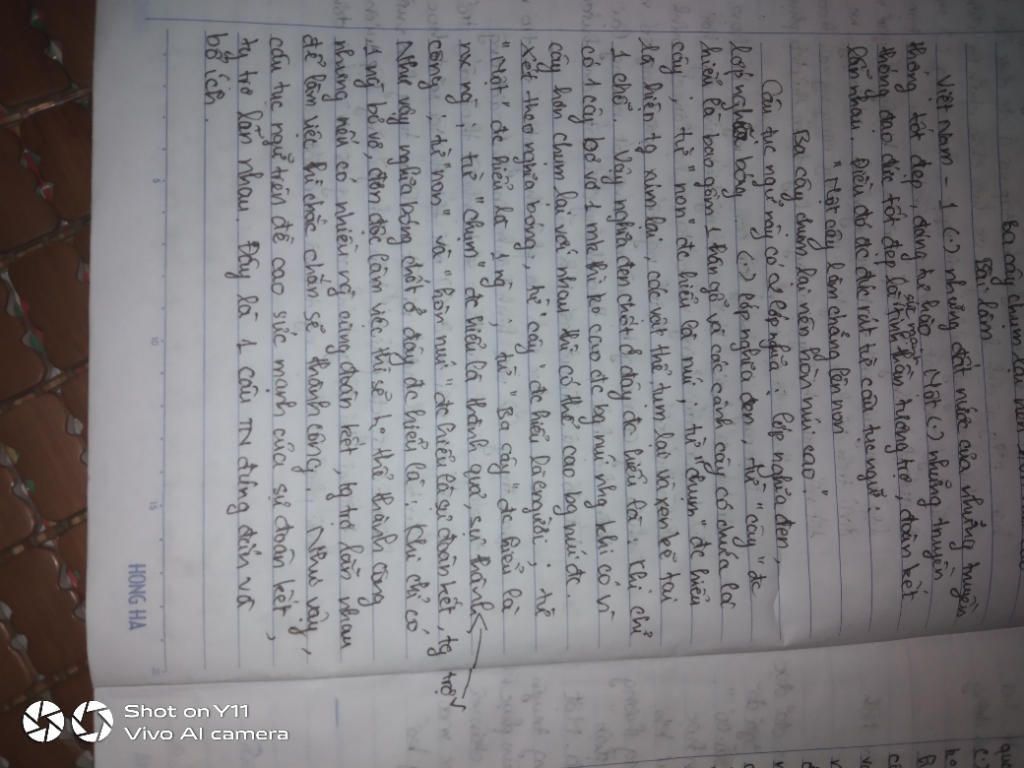 Ba cây chụm lại nên
Bài làm
Việt Nam - 1 (.) những đất nước của những truyền
thống tốt đẹp, đáng tự hào. Một (.) những truyền
thống đạo đức tốt đẹp là tinh thần tương trợ, đoàn kết
lẫn nhau. Điều đó đc đúc rút từ câu tục ngữ:
"Một cây làm chẳng lên non
Ba cây chụm lại nên hòn núi cao".
Câu tục ngữ này có 2 lớp nghĩa: lớp nghĩa đen,
lớp nghĩa bóng. (.) lớp nghĩa đen, từ "cây" đc
hiểu là bao gồm 1 thân gỗ và các cành cây có chứa lá
cây; từ "non" đc hiểu là núi; từ "chụm" đc hiểu
là hiện tg xúm lại, các vật thể tụm lại và ven bờ tại
1 chỗ. Vậy nghĩa đen chốt ở đây đc hiểu là: Khi chỉ
có 1 cây bơ vơ 1 mk thì ko cao đc bg núi nhg khi có vì
cây hơn chụm lại với nhau thì có thể cao bg núi đc.
Xét theo nghĩa bóng, từ "cây" đc hiểu là con người; từ
"Một" đc hiểu là 1 ng; từ "Ba cây" đc hiểu là
nx ng; từ "chụm" đc hiểu là thành quả, sự thành
công; từ "non" và "hòn núi" đc hiểu là đoàn kết, tg trợ
Như vậy nghĩa bóng chốt ở đây đc hiểu là: Khi chỉ có
1 ng bơ vơ, đơn độc làm việc thì sẽ ko thể thành công
nhưng nếu có nhiều ng cùng đoàn kết, tg trợ lẫn nhau
để làm việc thì chắc chắn sẽ thành công. Như vậy,
câu tục ngữ trên đề cao sức mạnh của sự đoàn kết,
tg trợ lẫn nhau. Đây là 1 câu TN đúng đắn và
bổ ích.
HONG HA
Shot on Y11
Vivo AI camera